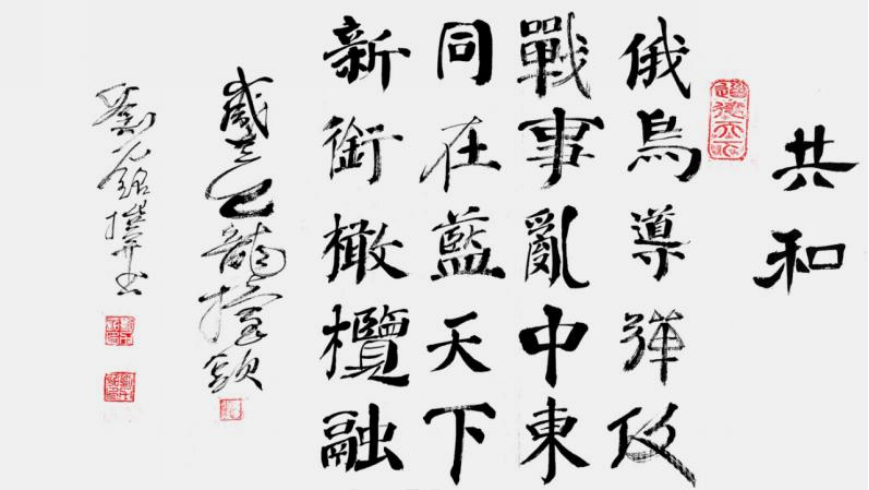 共和
俄烏導彈
戰事亂中東
同在藍天下
新銜橄欖融
歲在乙巳龍擡頭
劉元銘撰并書